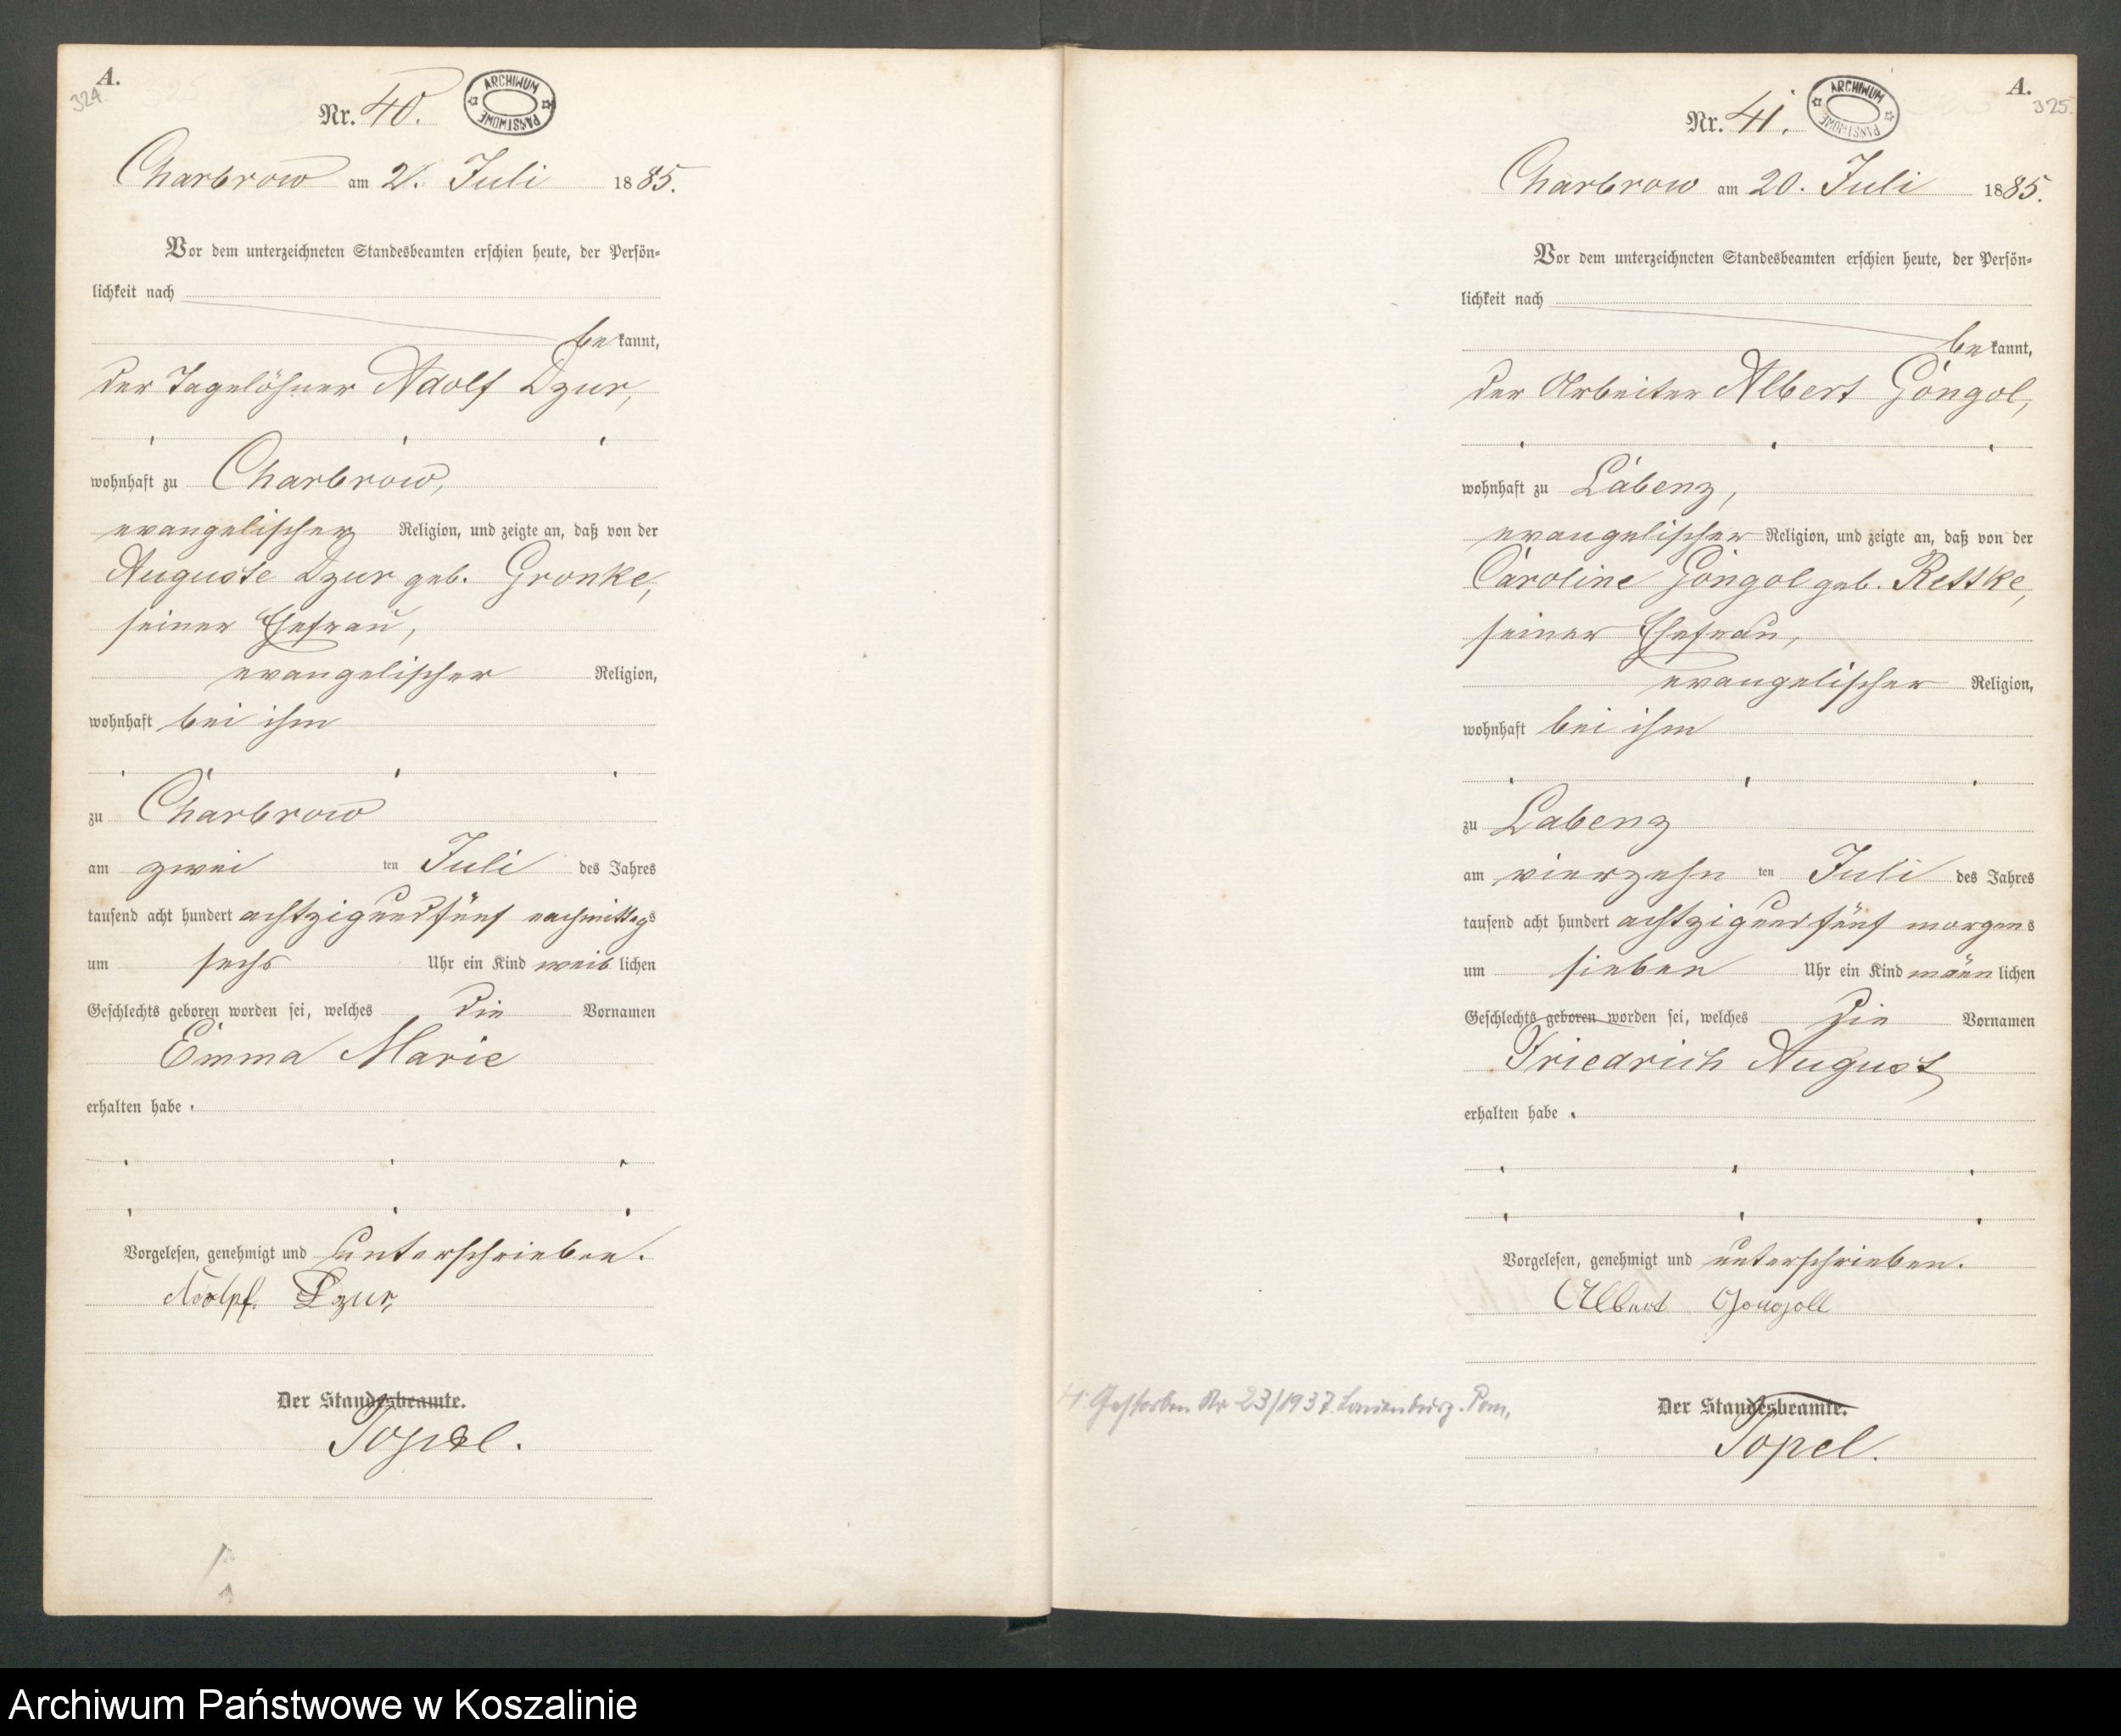 A.
324.
Nr. 40.
ARCHIWUM PAŃSTWOWE
Charbrow am 2. Juli 1885.
Vor dem unterzeichneten Standesbeamten erschien heute, der Persön-
lichkeit nach
bekannt,
der Tagelöhner Adolf Dzur,
wohnhaft zu Charbrow,
evangelischer Religion, und zeigte an, daß von der
Auguste Dzur geb. Gronke,
seiner Ehefrau,
evangelischer Religion,
wohnhaft bei ihm
zu Charbrow
am zwei ten Juli des Jahres
tausend acht hundert achtzigundfünf nachmittags
um sechs Uhr ein Kind weiblichen
Geschlechts geboren worden sei, welches die Vornamen
Emma Marie
erhalten habe.
Vorgelesen, genehmigt und unterschrieben.
Adolpf. Dzur,
Der Standesbeamte.
Topel.
A.
325.
Nr. 41.
ARCHIWUM PAŃSTWOWE
Charbrow am 20. Juli 1885.
Vor dem unterzeichneten Standesbeamten erschien heute, der Persön-
lichkeit nach
bekannt,
der Arbeiter Albert Gongol,
wohnhaft zu Labenz,
evangelischer Religion, und zeigte an, daß von der
Caroline Gongol geb. Rettke,
seiner Ehefrau,
evangelischer Religion,
wohnhaft bei ihm
zu Labenz
am vierzehn ten Juli des Jahres
tausend acht hundert achtzigundfünf morgens
um sieben Uhr ein Kind männlichen
Geschlechts geboren worden sei, welches die Vornamen
Friedrich August
erhalten habe.
Vorgelesen, genehmigt und unterschrieben.
Albert Gongoll
H. Gestorben Nr 23/1937. Lauenburg. Pom,
Der Standesbeamte.
Topel.
Archiwum Państwowe w Koszalinie